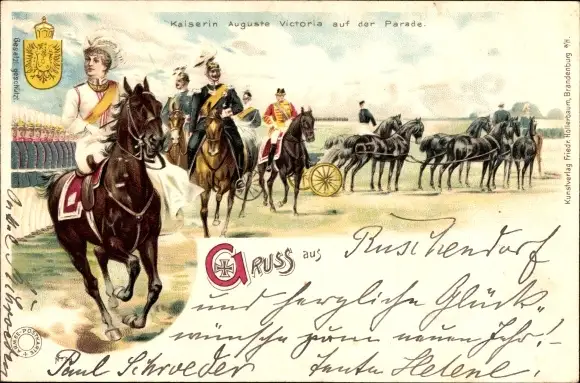 Kaiserin Auguste Victoria auf der Parade.
Gesetzl. geschützt.
Kunstverlag Friedr. Hollerbaum, Brandenburg a/H.
Gruss aus Ruschendorf
und herzliche Glück-
wünsche zum neuen Jahr!
Paul Schroeder Tante Helene!
Schroeder
POSTKARTE